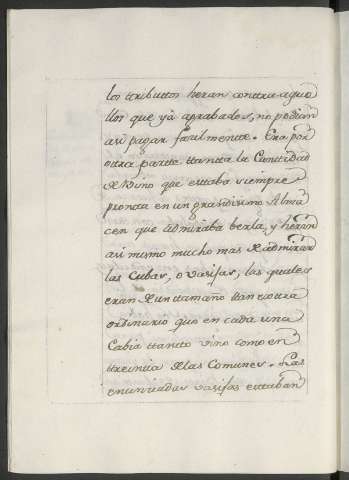 los ttributtos heran conttra aque
llos que yà aprabados, no podian
asi pagar facilmentte. Era por
ottra partte ttantta la Canttidad
de Vino que esttaba siempre
prontta en un grandisimo Alma
cen que admiraba berla, y heran
asi mismo mucho mas de admirar
las Cubas, o vasijas, las quales
eran de un ttamaño ttan exttra
ordinario que en cada una
Cabia ttantto vino como en
ttreintta de las Comunes. Las
enunciadas vasijas esttaban